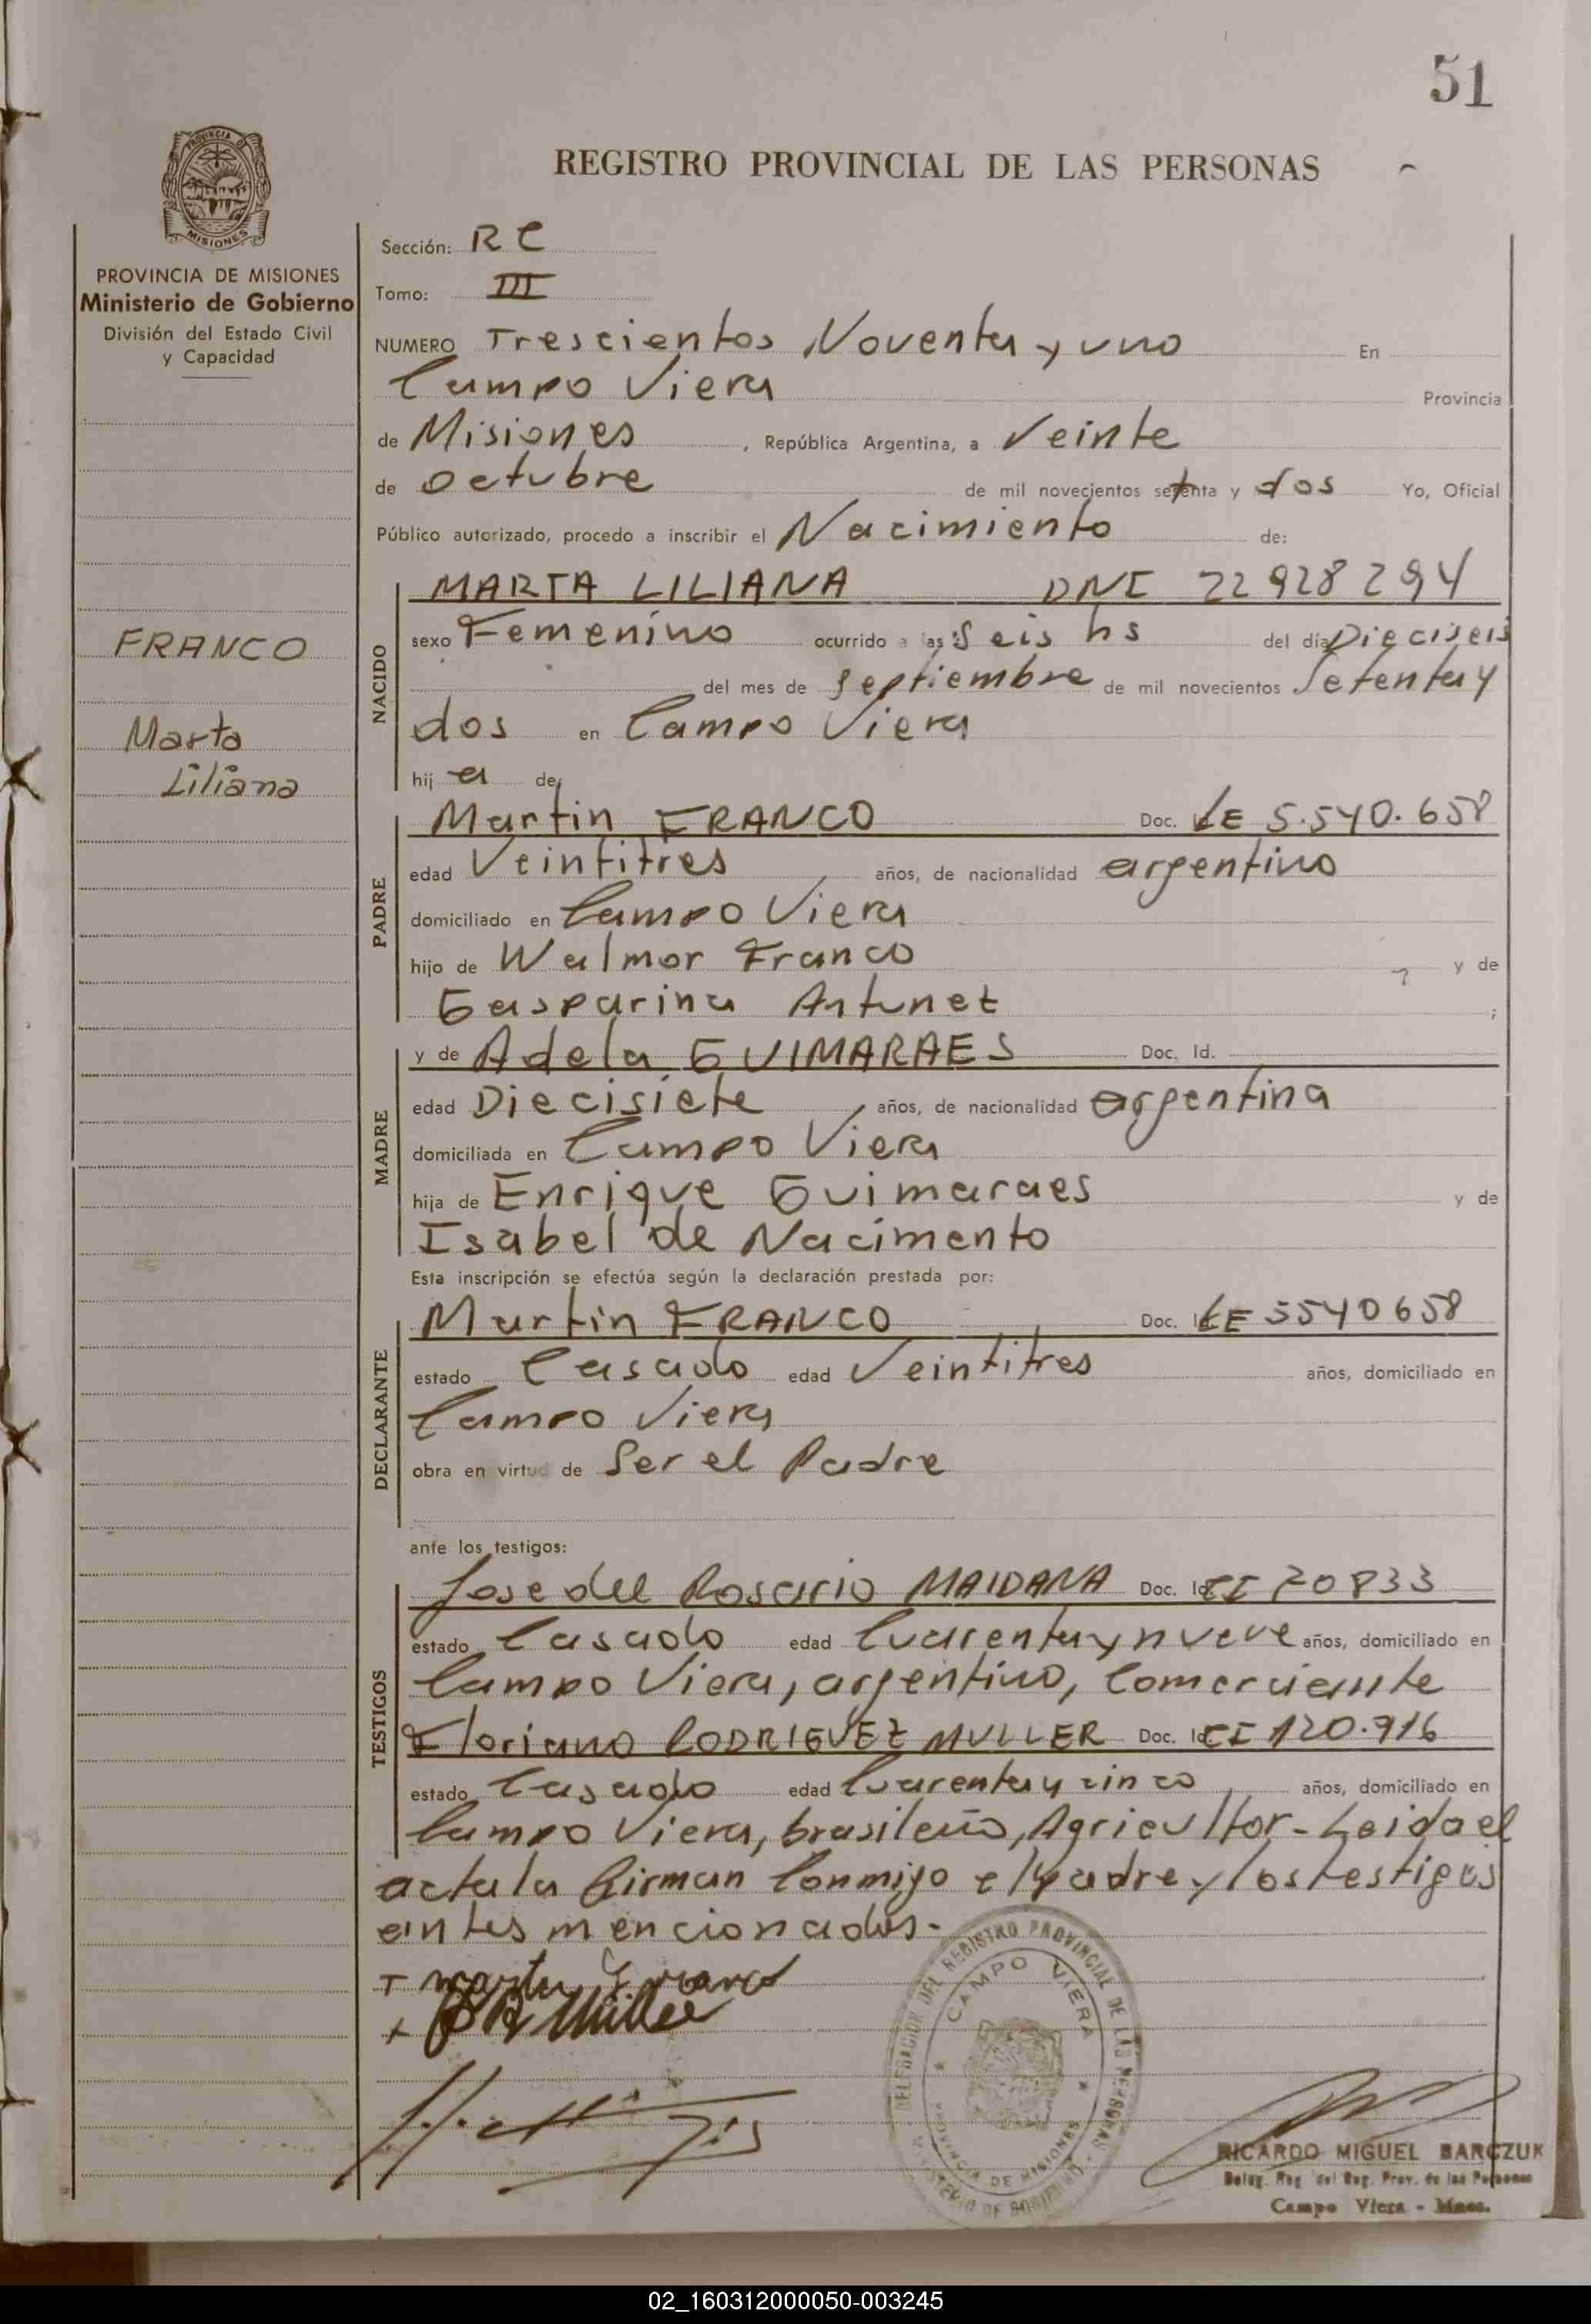 51
REGISTRO PROVINCIAL DE LAS PERSONAS
PROVINCIA DE MISIONES
PROVINCIA DE MISIONES
Ministerio de Gobierno
División del Estado Civil
y Capacidad
FRANCO
Marta
Liliana
Sección: R C
Tomo: III
NUMERO Trescientos Noventa y uno En
Campo Viera Provincia
de Misiones, República Argentina, a Veinte
de octubre de mil novecientos setenta y dos Yo, Oficial
Público autorizado, procedo a inscribir el Nacimiento de:
NACIDO
MARTA LILIANA DNI 22928294
sexo Femenino ocurrido a las Seis hs del día Dieciseis
del mes de Septiembre de mil novecientos Setenta y
dos en Campo Viera
hij a de:
PADRE
Martin FRANCO Doc. LE 5.540.658
edad Veintitres años, de nacionalidad argentino
domiciliado en Campo Viera
hijo de Walmor Franco y de
Gasparina Antunez ;
MADRE
y de Adela GUIMARAES Doc. Id.
edad Diecisiete años, de nacionalidad argentina
domiciliada en Campo Viera
hija de Enrique Guimaraes y de
Isabel de Nacimento
Esta inscripción se efectúa según la declaración prestada por:
DECLARANTE
Martin FRANCO Doc. LE 5540658
estado Casado edad Veintitres años, domiciliado en
Campo Viera
obra en virtud de Ser el Padre
ante los testigos:
TESTIGOS
Jose del Rosario MAIDANA Doc. Id CI 70833
estado Casado edad Cuarenta y nueve años, domiciliado en
Campo Viera, argentino, Comerciante
Floriano RODRIGUEZ MULLER Doc. Id CI 120.716
estado Casado edad Cuarenta y cinco años, domiciliado en
Campo Viera, brasileño, Agricultor - Leida el
acta la firman Conmigo el padre y los testigos
antes mencionados.-
Müller
DELEGACION DEL REGISTRO PROVINCIAL DE LAS PERSONAS
CAMPO VIERA
PROVINCIA DE MISIONES
MINISTERIO DE GOBIERNO
RICARDO MIGUEL BARCZUK
Deleg. Reg. del Reg. Prov. de las Personas
Campo Viera - Mnes.
02_160312000050-003245